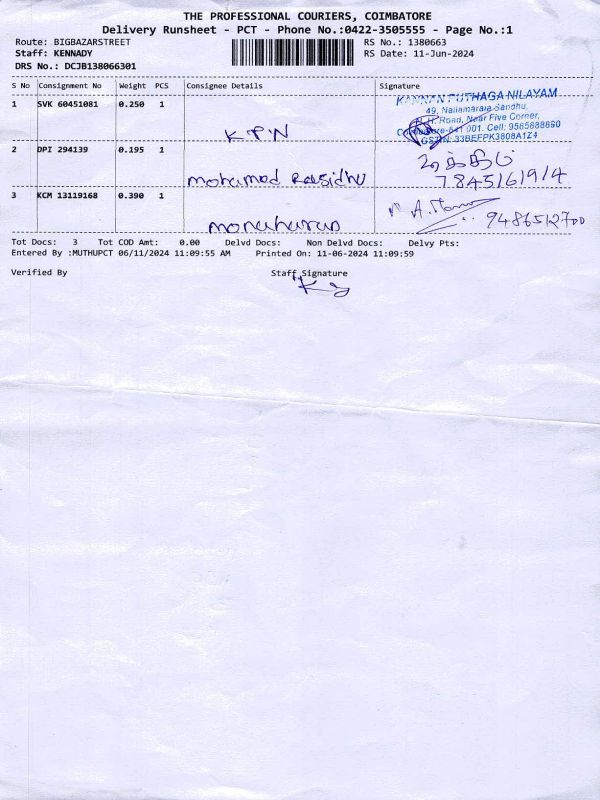 THE PROFESSIONAL COURIERS, COIMBATORE
Delivery Runsheet - PCT - Phone No.:0422-3505555 - Page No.:1
Route: BIGBAZARSTREET RS No.: 1380663
Staff: KENNADY RS Date: 11-Jun-2024
DRS No.: DCJB138066301
S No Consignment No Weight PCS Consignee Details Signature
1 SVK 60451081 0.250 1
KANNAN PUTHAGA NILAYAM
49, Nallamaraja Sandhu,
Road, Near Five Corner,
Coimbatore-641 001. Cell:
GSTIN: 33BEFPK3808A1Z4
KPN
2 DPI 294139 0.195 1
mohamed
7845161914
3 KCM 13119168 0.390 1
M. A.
manaharan 9486512700
Tot Docs: 3 Tot COD Amt: 0.00 Delvd Docs: Non Delvd Docs: Delvy Pts:
Entered By :MUTHUPCT 06/11/2024 11:09:55 AM Printed On: 11-06-2024 11:09:59
Verified By Staff Signature